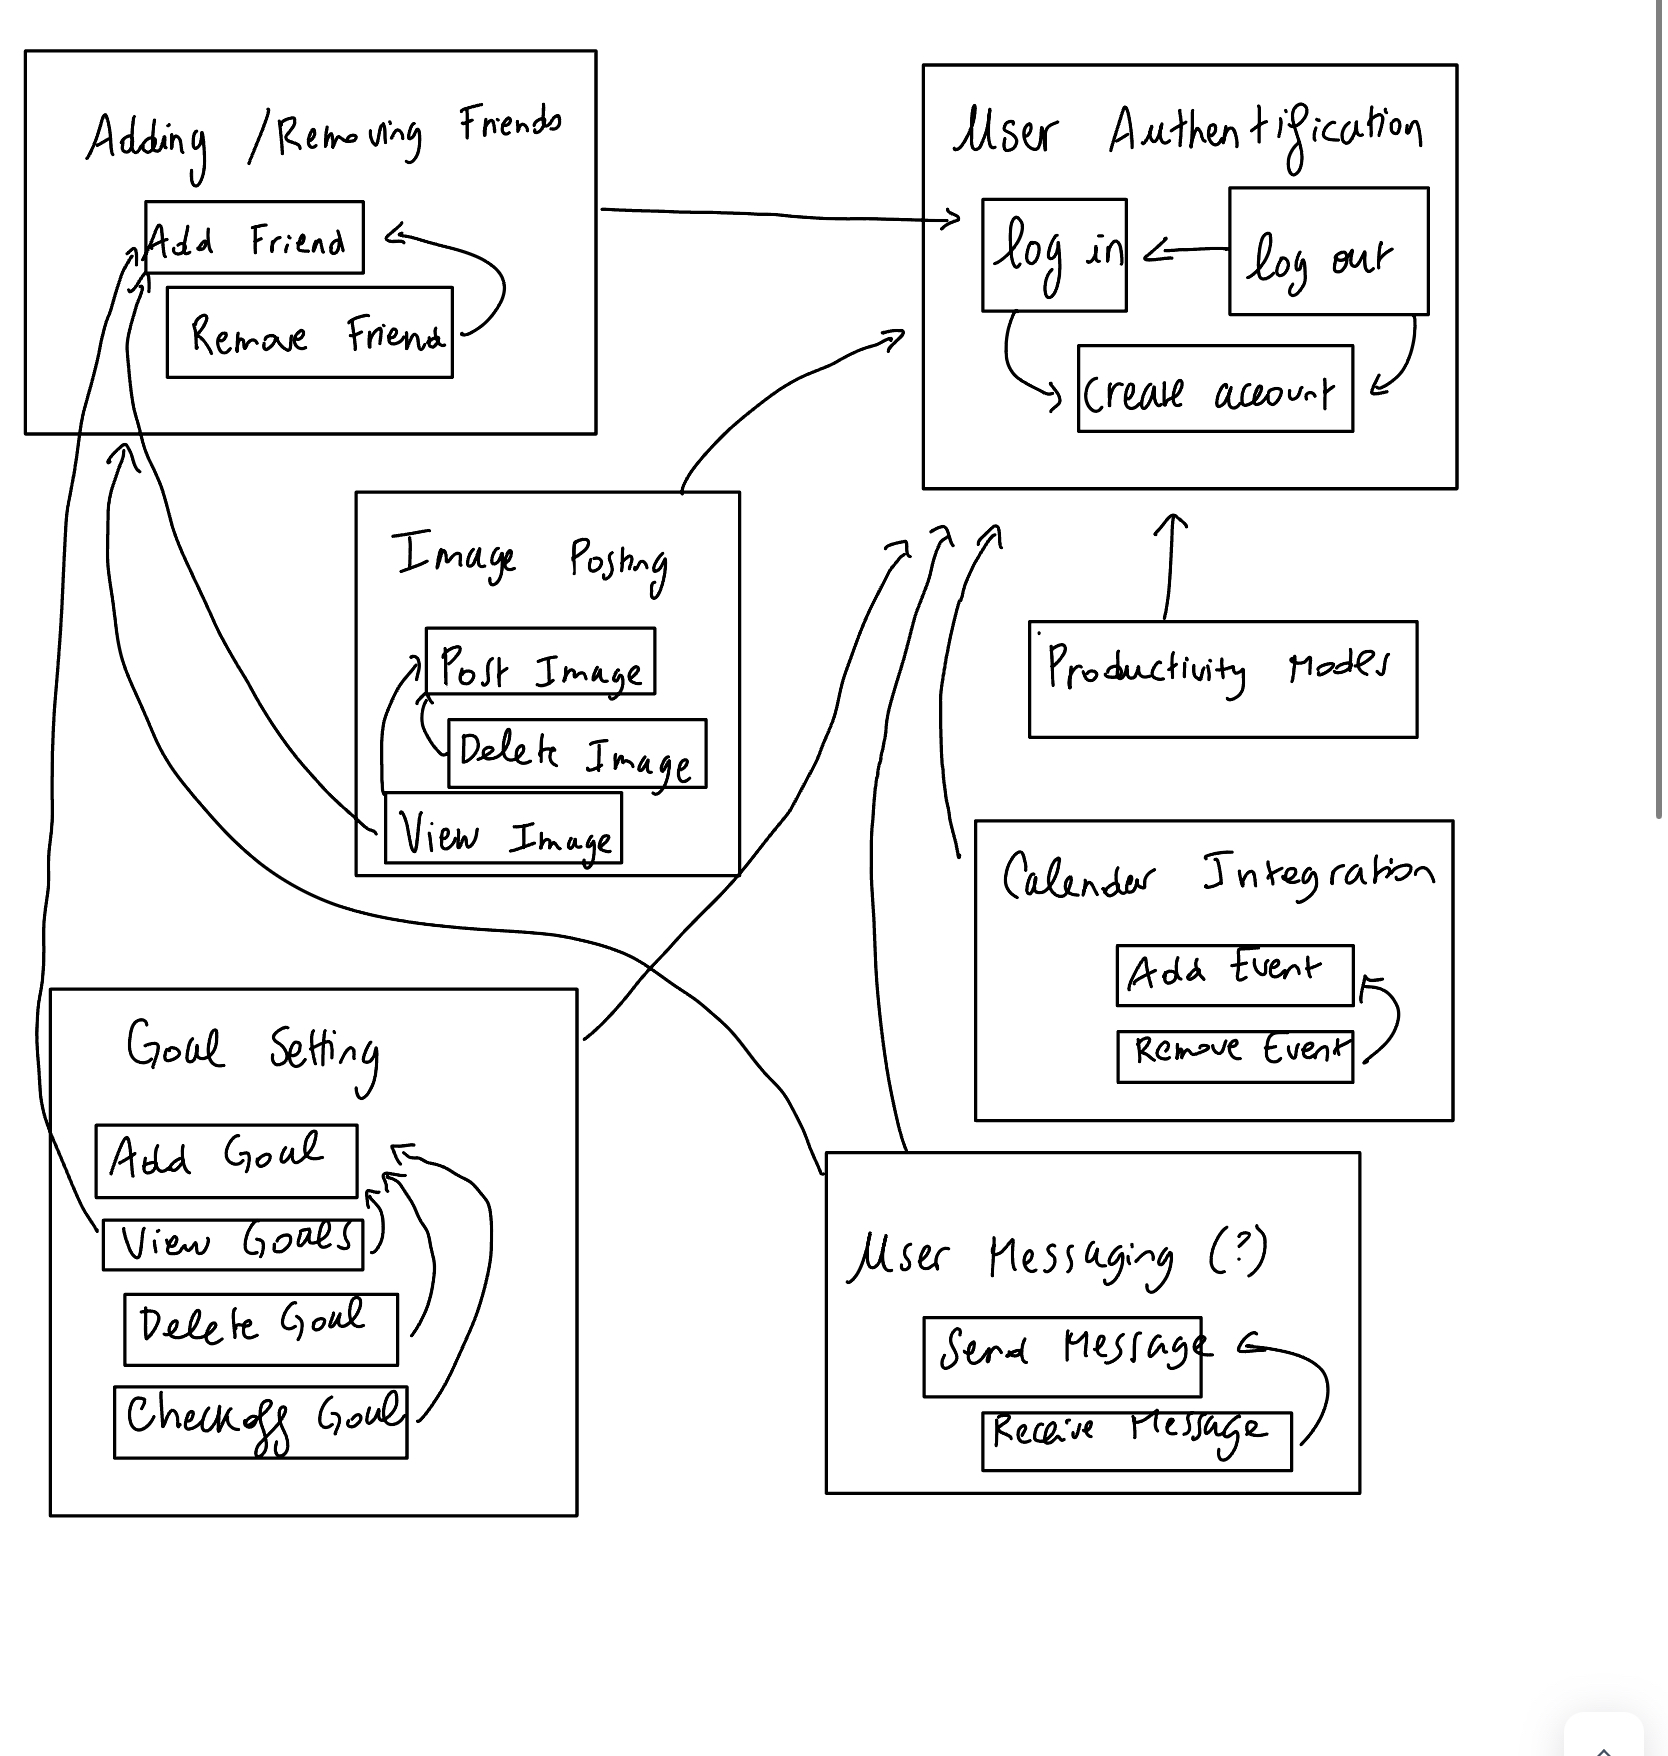 Adding /Removing Friends
Add Friend
Remove Friend
User Authentification
log in
log out
Create account
Image Posting
Post Image
Delete Image
View Image
Productivity Modes
Calendar Integration
Add Event
Remove Event
Goal Setting
Add Goal
View Goals
Delete Goal
Checkoff Goal
User Messaging (?)
Send Message
Receive Message